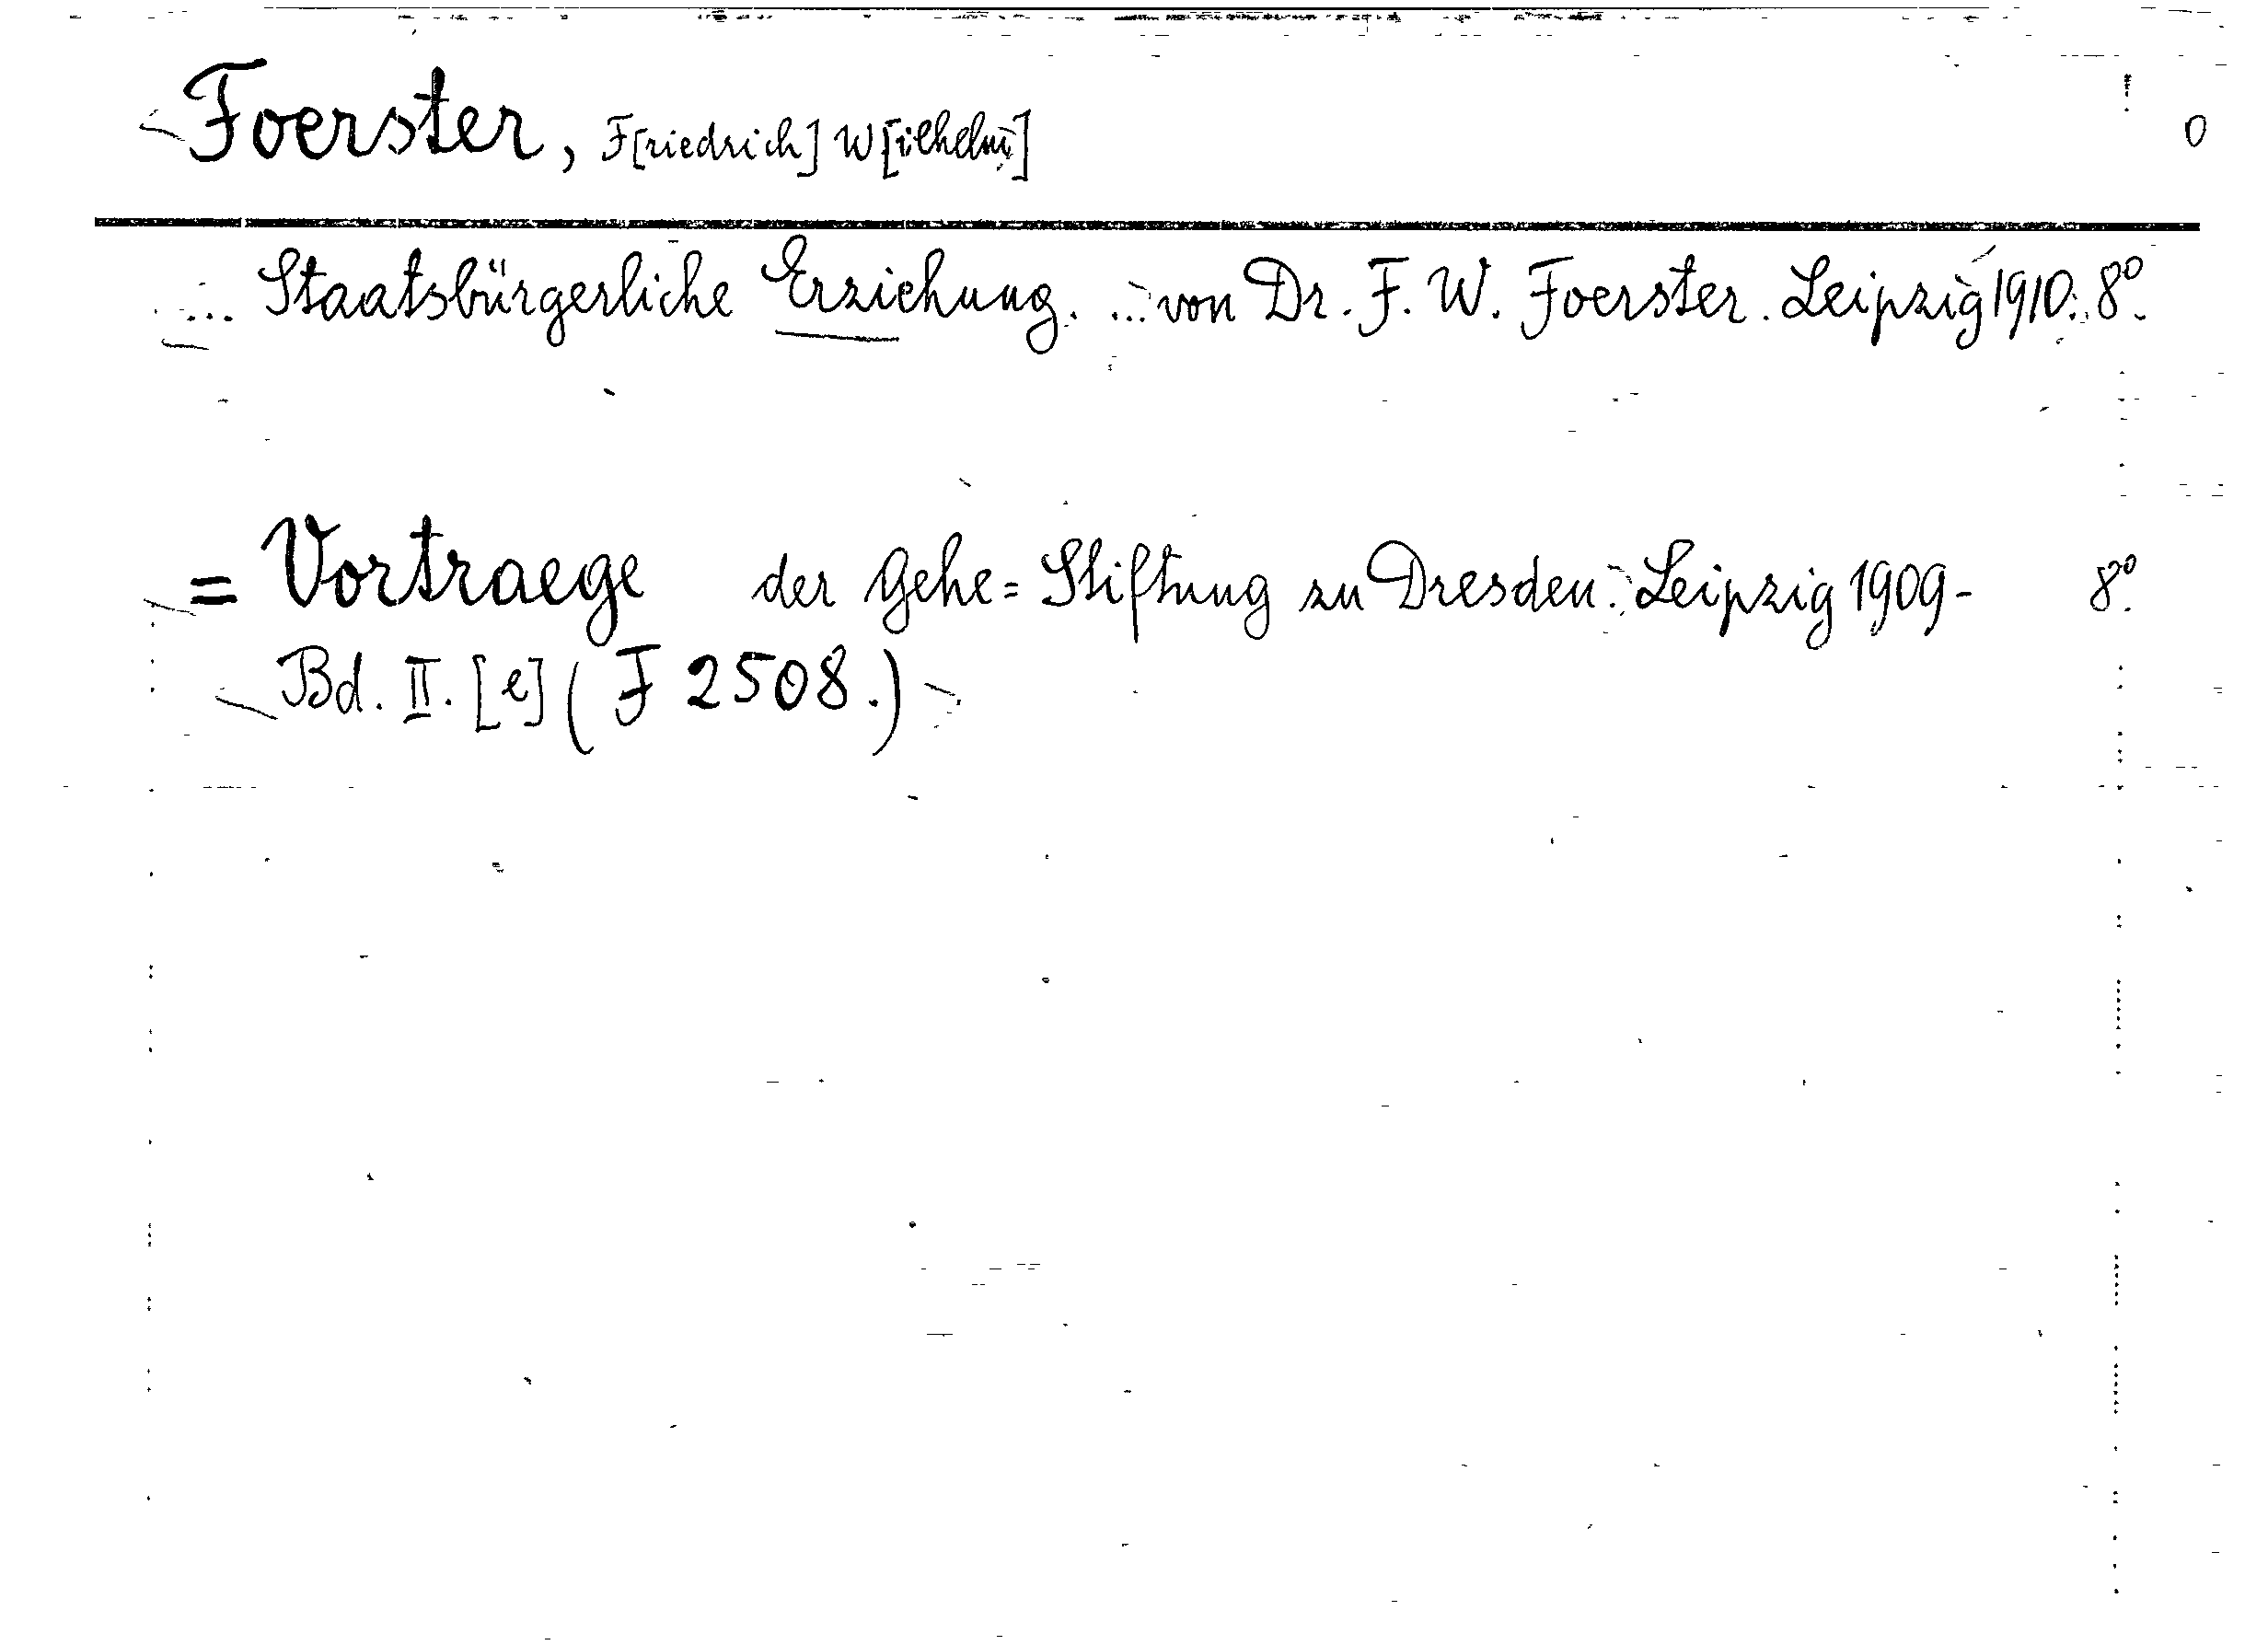 Foerster, F[riedrich] W[ilhelm] 0
... Staatsbürgerliche Erziehung. ... von Dr. F. W. Foerster. Leipzig 1910. 8º.
= Vortraege der Gehe=Stiftung zu Dresden. Leipzig 1909- 8º.
Bd. II. [e] (F 2508.)